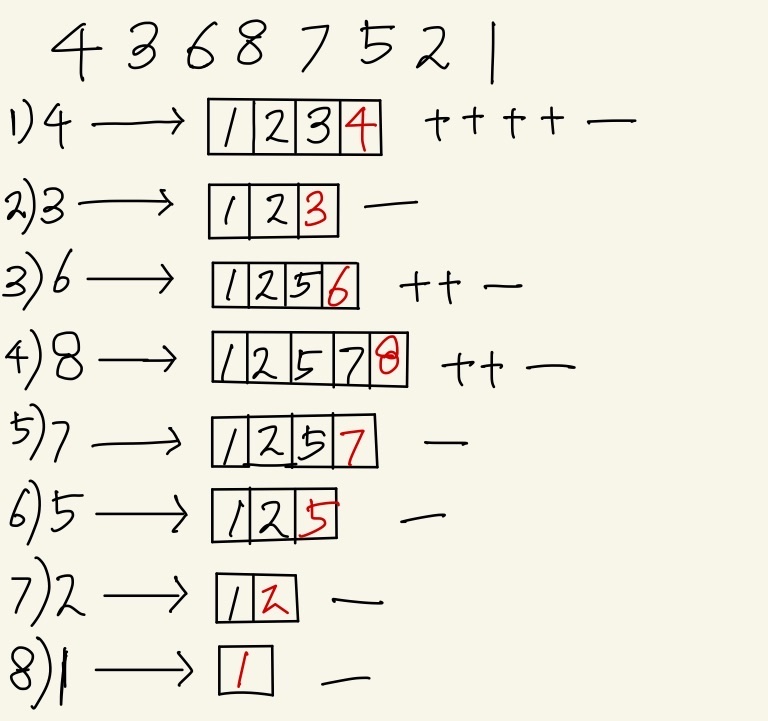 4 3 6 8 7 5 2 1
1) 4 → 1 2 3 4 + + + + −
2) 3 → 1 2 3 −
3) 6 → 1 2 5 6 + + −
4) 8 → 1 2 5 7 8 + + −
5) 7 → 1 2 5 7 −
6) 5 → 1 2 5 −
7) 2 → 1 2 −
8) 1 → 1 −